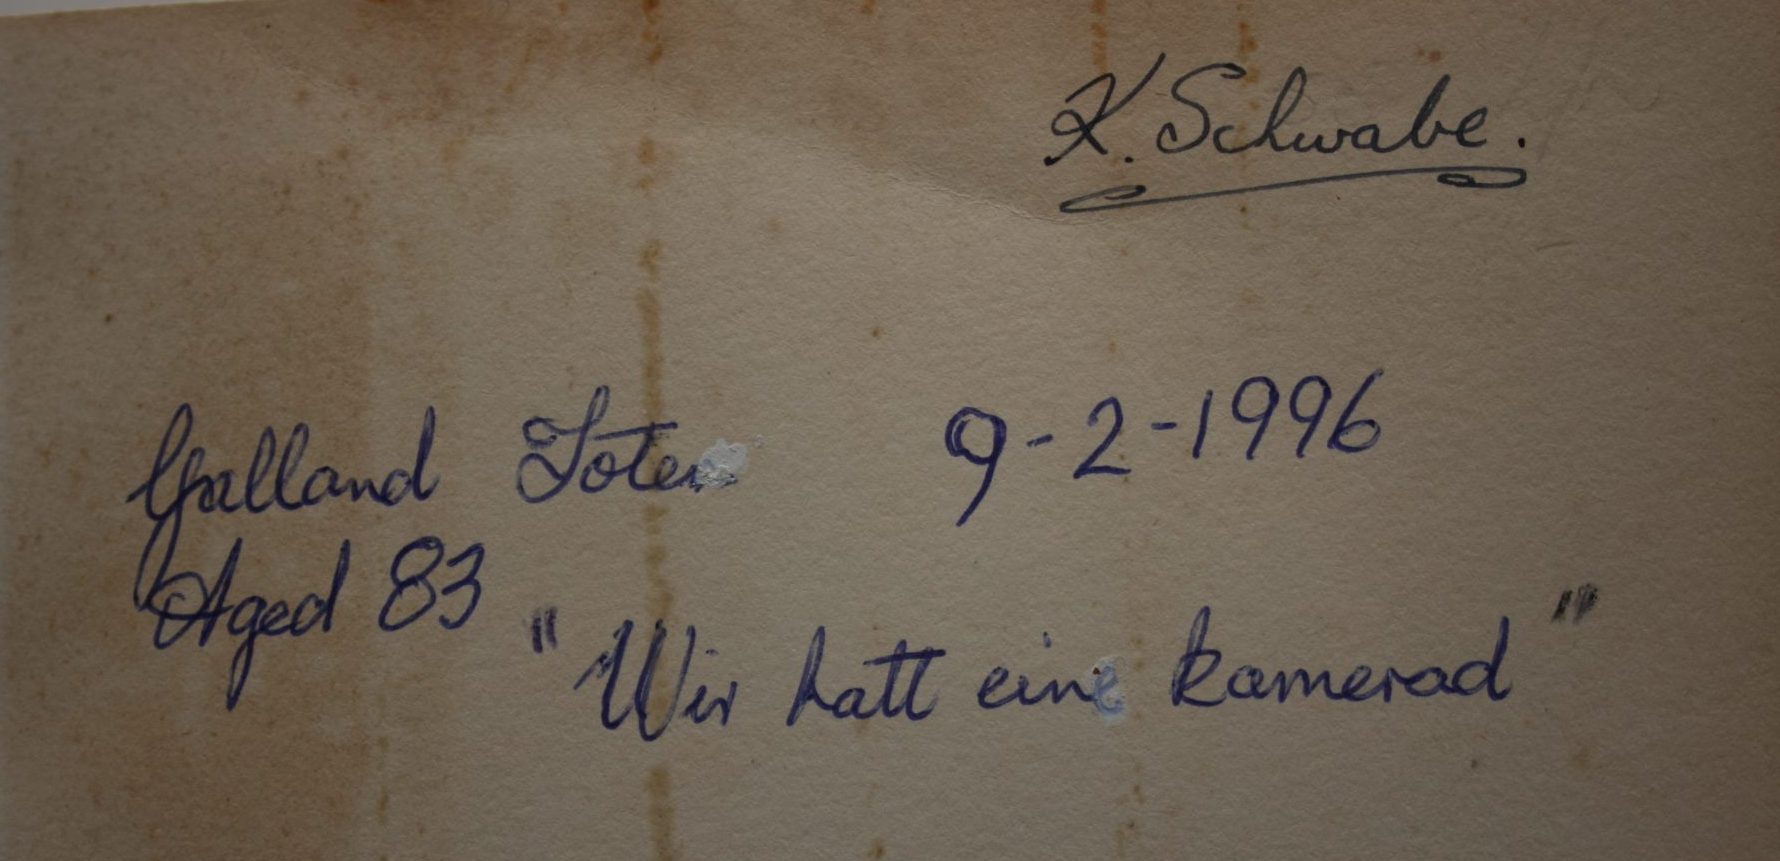 K. Schwabe.
Galland Toten 9-2-1996
Aged 83
"Wir hatt eine kamerad"